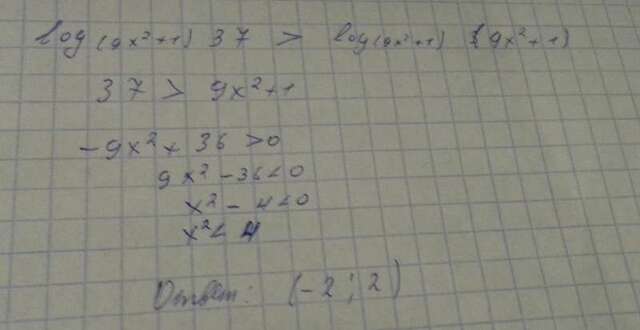 log(9x²+1) 37 > log(9x²+1) (9x²+1)
37 > 9x²+1
-9x²+36 >0
9x²-36<0
x²-4<0
x²<4
Ответ: (-2; 2)